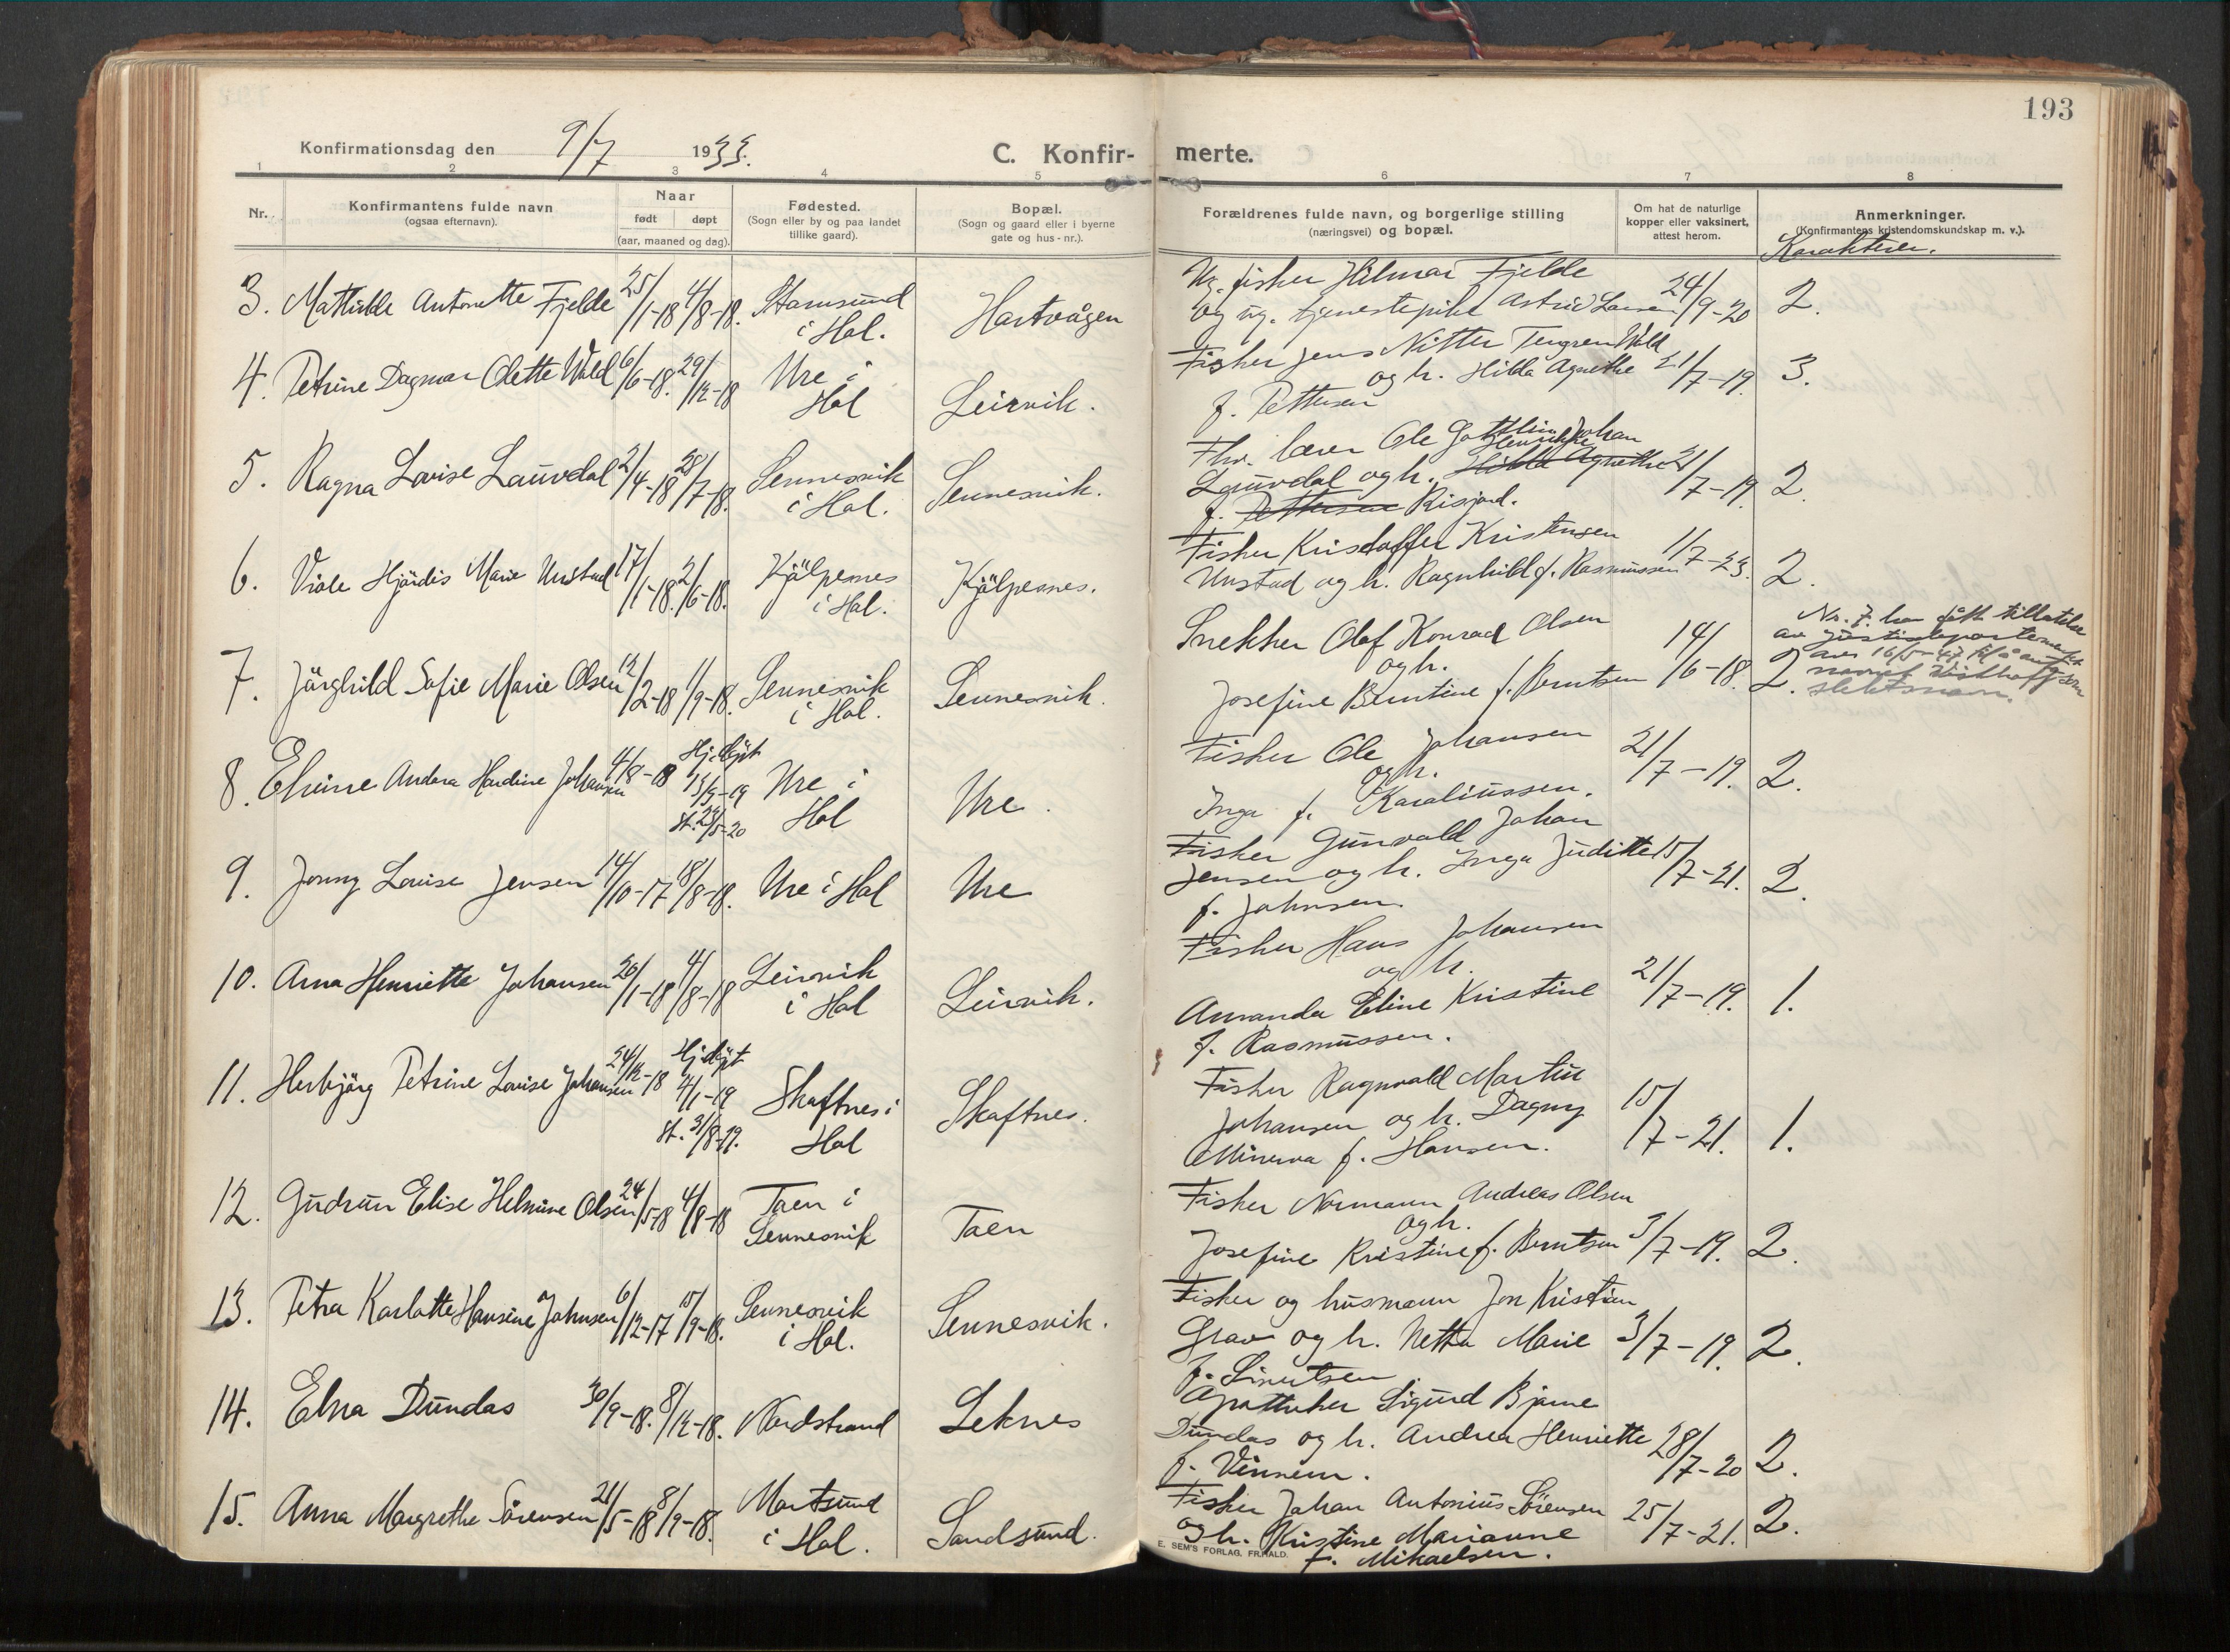 193
Konfirmationsdag den 9/7 1933.
C. Konfir- merte.
1 2 3 4 5 6 7 8
Nr.
Konfirmantens fulde navn
(ogsaa efternavn).
Naar
født døpt
(aar, maaned og dag).
Fødested.
(Sogn eller by og paa landet
tillike gaard).
Bopæl.
(Sogn og gaard eller i byerne
gate og hus-nr.).
Forældrenes fulde navn, og borgerlige stilling
(næringsvei) og bopæl.
Om hat de naturlige
kopper eller vaksinert,
attest herom.
Anmerkninger.
(Konfirmantens kristendomskundskap m. v.).
Karakterer.
3. Mathilde Antonette Fjelde 25/1-18 4/8-18. Stamsund
i Hol.
Hartvågen
Ug. fisker Hilmar Fjelde
og ug. tjenestepike Astrid Larsen 24/9-20 2.
4. Petrine Dagmar Olette Wold 6/6-18. 29/12-18 Ure i
Hol
Leirvik.
Fisker Jens Nitter Tengren Wold
og h. Hilda Agnethe 21/7-19. 3.
f. Pettersen
5. Ragna Lovise Lauvdal 2/4-18 28/7-18. Sennesvik
i Hol.
Sennesvik.
Fhv. lærer Ole Gottlieb Johan
Henrikke
Lauvdal og h. Hilda Agnethe 21/7-19 2.
f. Pettersen Risjord.
6. Viole Hjördis Marie Unstad 17/1-18. 2/6-18. Kjölpesnes
i Hol.
Kjölpesnes.
Fisker Kristoffer Kristensen
Unstad og h. Ragnhild f. Rasmussen 1/7-23. 2.
7. Jörghild Sofie Marie Olsen 12/2-18 1/9-18. Sennesvik
i Hol.
Sennesvik.
Snekker Olaf Konrad Olsen
og h.
Josefine Berntine f. Berntsen 14/6-18. 2.
Nr. 7. har fått tillatelse
av justisdepartementet
av 16/5-47 til å
navnet som
slektsnavn.
8. Elvine Andora Hardine Johansen 4/8-18 Hj.döpt
13/3-19
st. 23/5-20
Ure i
Hol
Ure.
Fisker Ole Johansen
og h.
Inga f. Karoliussen. 21/7-19. 2.
9. Jonny Lovise Jensen 14/10-17 18/8-18. Ure i Hol
Ure
Fisker Gunvald Johan
Jensen og h. Inga Juditte 15/7-21. 2.
f. Johnsen.
10. Arna Henriette Johansen 26/1-18 4/8-18 Leirvik
i Hol
Leirvik.
Fisker Hans Johansen
og h.
Amanda Eline Kristine 21/7-19. 1.
f. Rasmussen.
11. Herbjörg Petrine Lovise Johansen 24/12-18 Hj.döpt
4/1-19
st. 3/8-19.
Skaftnes i
Hol
Skaftnes.
Fisker Ragnvald Martin
Johansen og h. Dagny 15/7-21. 1.
Minerva f. Hansen.
12. Gudrun Elise Helmine Olsen 24/5-18 4/8-18 Taen i
Sennesvik
Taen
Fisker Normann Andreas Olsen
og h.
Josefine Kristine f. Berntsen 3/7-19. 2.
13. Petra Karlotte Hansine Johnsen 6/12-17 15/9-18. Sennesvik
i Hol.
Sennesvik.
Fisker og husmann Jon Kristian
Grav og h. Netta Marie 3/7-19. 2.
f. Sivertsen
14. Elna Dundas 30/9-18. 8/12-18. Nordstrand
Leknes
Apotheker Sigurd Bjarne
Dundas og h. Andrea Henriette 28/7-20 2.
f. Vinnem.
15. Anna Margrethe Sörensen 21/5-18 8/9-18. Mortsund
i Hol.
Sandsund.
Fisker Johan Antonius Sörensen
og h. Kristine Marianne 25/7-21. 2.
f. Mikaelsen.
E. SEM'S FORLAG. FR.HALD.